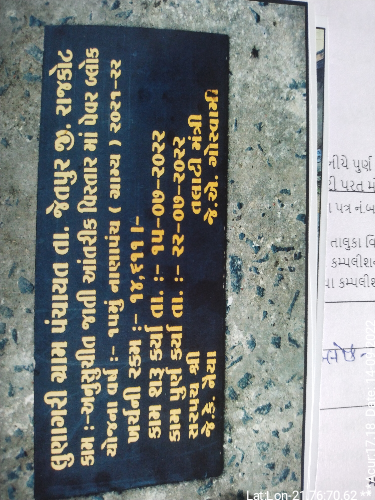 લુણાગરી ગ્રામ પંચાયત તા. જેતપુર જી. રાજકોટ
કામ :- અનુસુચીત જાતી આંતરીક વિસ્તાર માં પેવર બ્લોક
યોજના વર્ષ :- ૧૫મું નાણાપંચ ( ગ્રામ્ય ) ૨૦૨૧-૨૨
ખર્ચની રકમ :- ૧૪,૬૧૧ /-
કામ શરૂ કર્યા તા. :- ૧૫-૦૭-૨૦૨૨
કામ પુર્ણ કર્યા તા. :- ૨૨-૦૭-૨૦૨૨
સરપંચ શ્રી તલાટી મંત્રી
જે. કે. મૈયા જે. એ. ગોસ્વામી
નીચે પુર્ણ
પરત
પત્ર નં.
તાલુકા વિ
કમ્પલીશન
કમ્પલીશ
Lat Lon-21.76:70.62